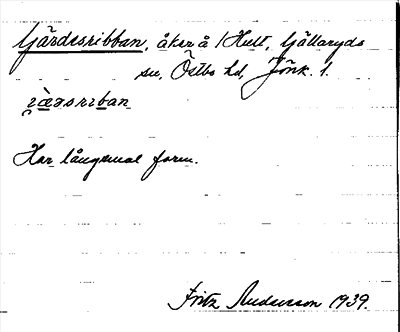 Gärdesribban, åker å 1 Hult, Gällaryds
sn, Östbo hd, Jönk. l.
Har långsmal form.
Fritz Andersson 1939.